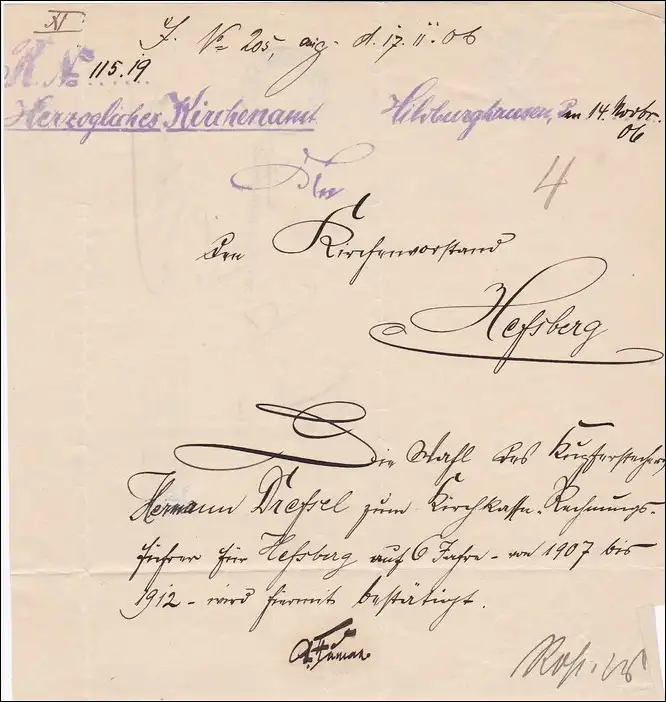 XI
J. No 205, aig. d. 17. 11. 06
K. No 115.19
Herzogliches Kirchenamt. Hildburghausen, den 14. Novbr. 06
An
4
den Kirchenvorstand
Heßberg
Die Wahl des Kupferstechers
Hermann Dreßel zum Kirchkassen-Rechnungs-
führer für Heßberg auf 6 Jahre - von 1907 bis
1912 - wird hiermit bestätigt.